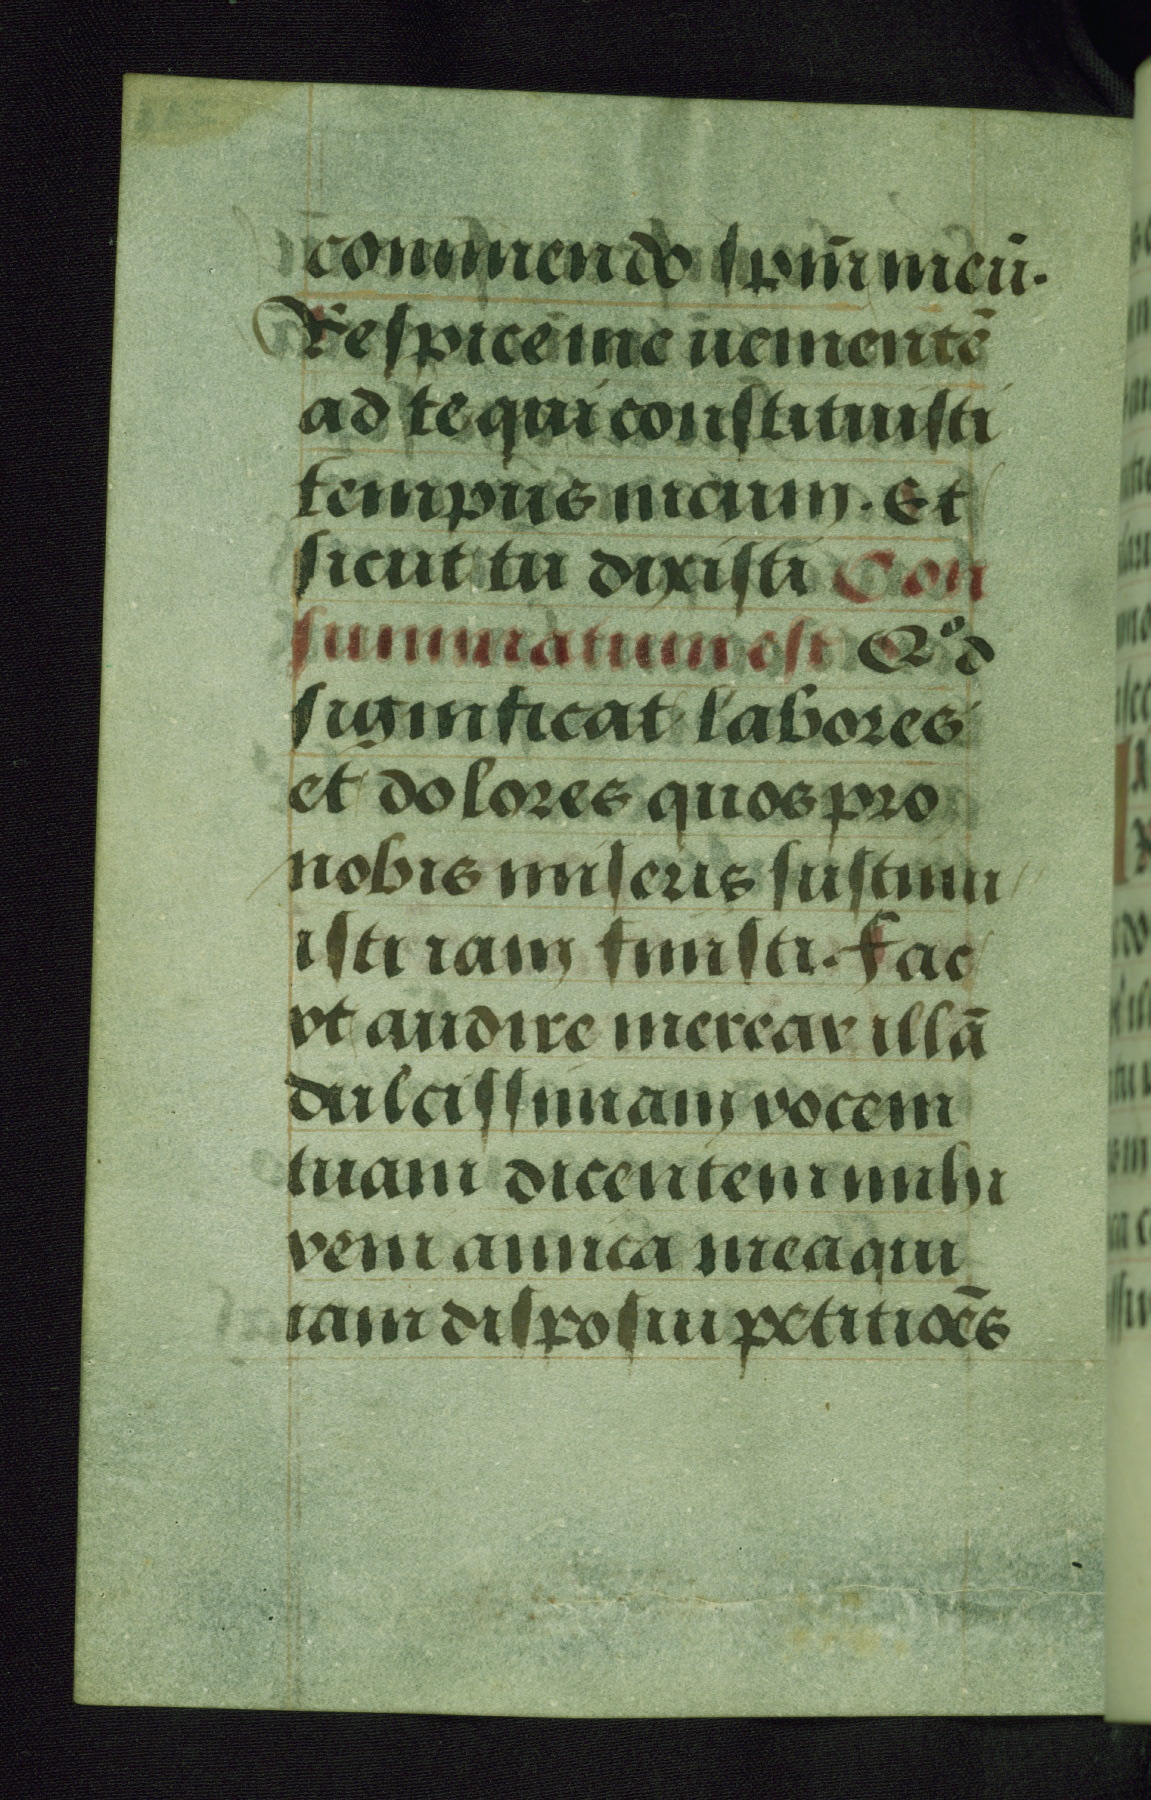 commendo spm̄ meū.
Respice me uenientē
ad te qui constituisti
tempus meum. Et
sicut tu dixisti Con
summatum est Qod
significat labores
et dolores quos pro
nobis miseris sustinu
isti iam finisti. Fac
vt audire merear illā
dulcissimam vocem
tuam dicentem mihi
veni amica mea qui
iam disposui petitiōēs